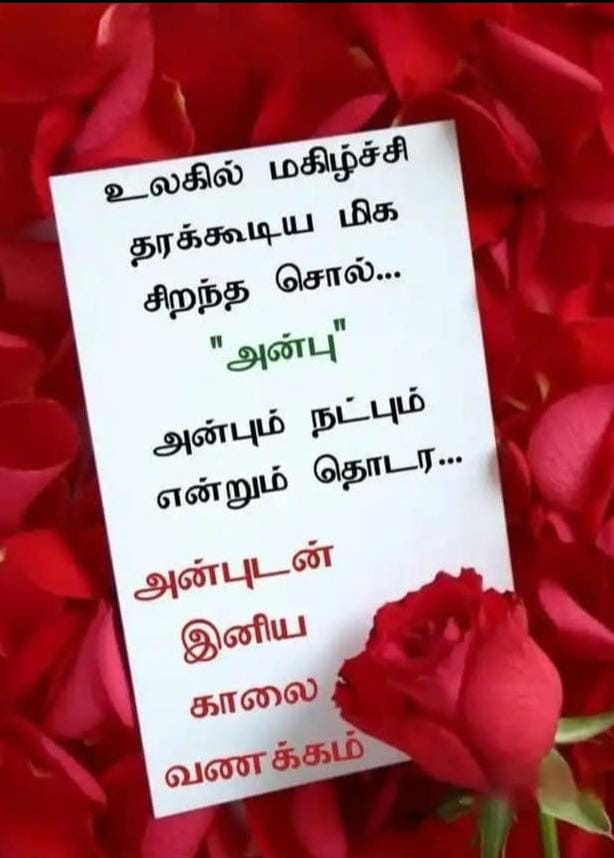 உலகில் மகிழ்ச்சி
தரக்கூடிய மிக
சிறந்த சொல்...
"அன்பு"
அன்பும் நட்பும்
என்றும் தொடர...
அன்புடன்
இனிய
காலை
வணக்கம்